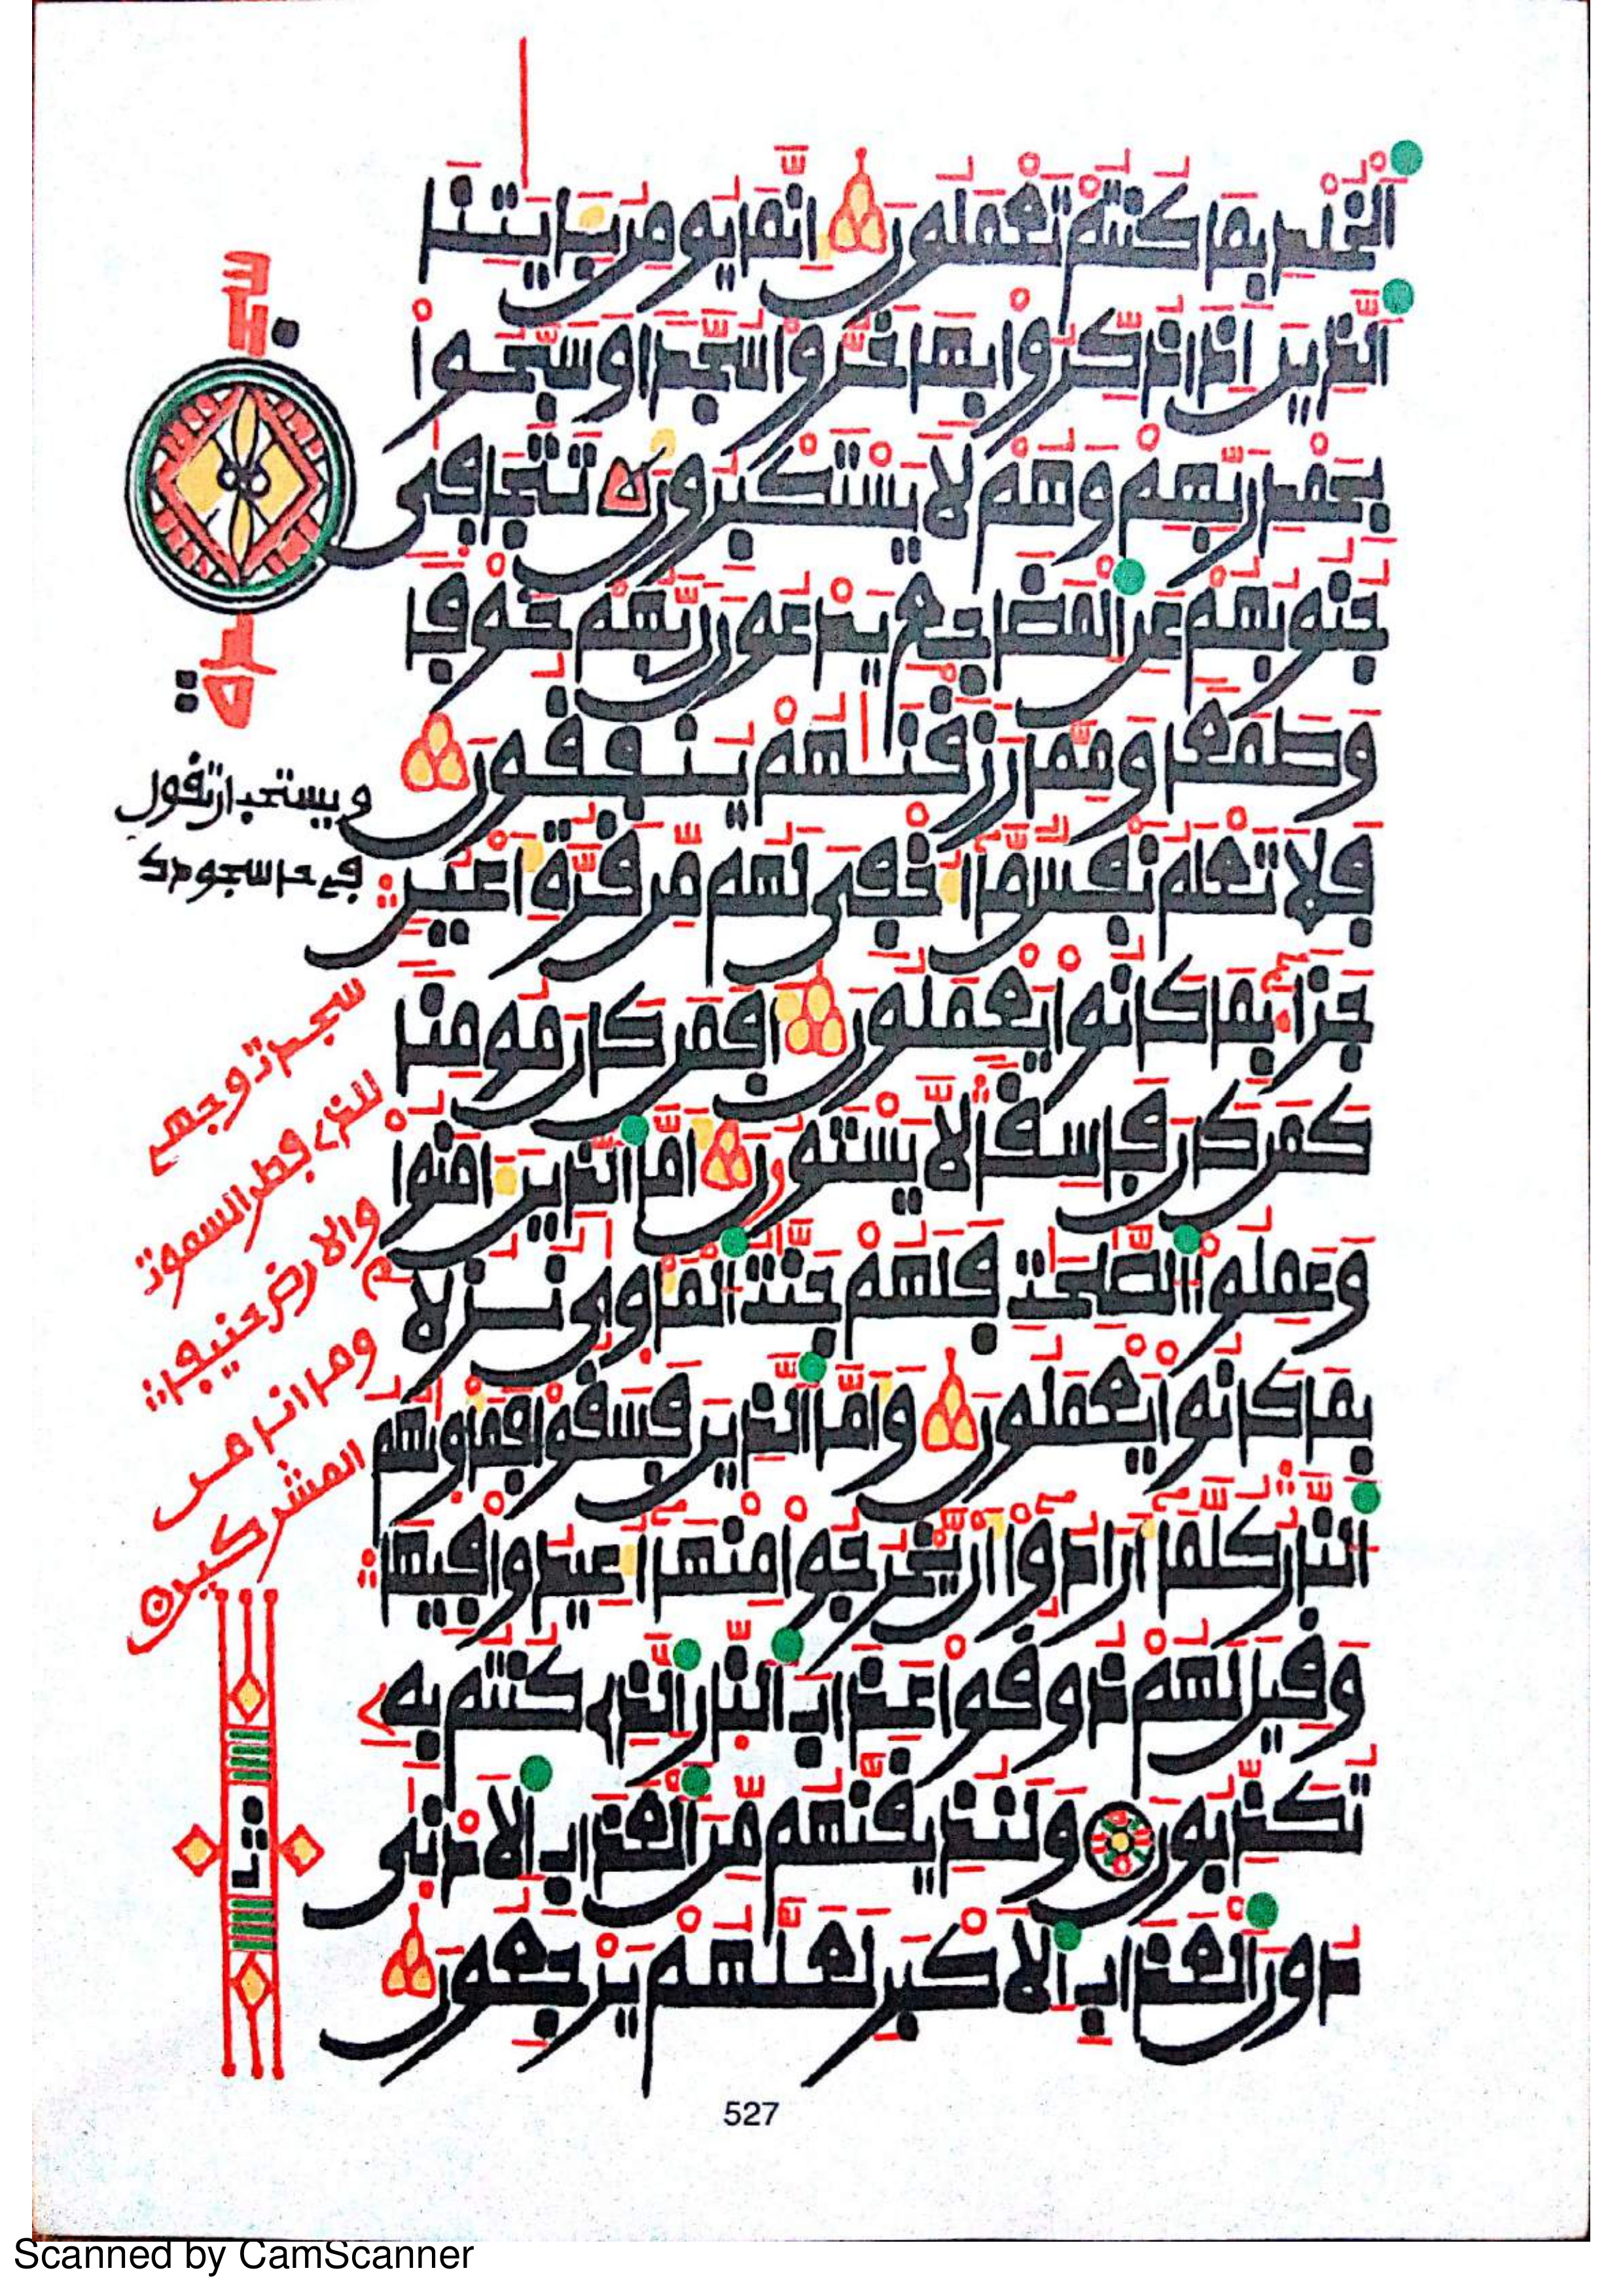 اَ۬لْخُلْدِ بِمَا كُنتُمْ تَعْمَلُونَ إِنَّمَا يُومِنُ بِـَٔايَٰتِنَا
اَ۬لذِينَ إِذَا ذُكِّرُواْ بِهَا خَرُّواْ سُجَّداً وَسَبَّحُواْ
بِحَمْدِ رَبِّهِمْ وَهُمْ لَا يَسْتَكْبِرُونَ تَتَجَافَىٰ
جُنُوبُهُمْ عَنِ اِ۬لْمَضَاجِعِ يَدْعُونَ رَبَّهُمْ خَوْفاً
وَطَمَعاً وَمِمَّا رَزَقْنَٰهُمْ يُنفِقُونَ
فَلَا تَعْلَمُ نَفْسٌ مَّآ أُخْفِيَ لَهُم مِّن قُرَّةِ أَعْيُنٍ
جَزَآءَۢ بِمَا كَانُواْ يَعْمَلُونَ أَفَمَن كَانَ مُومِناً
كَمَن كَانَ فَاسِقاً لَّا يَسْتَوُۥنَ أَمَّا اَ۬لذِينَ ءَامَنُواْ
وَعَمِلُواْ اُ۬لصَّٰلِحَٰتِ فَلَهُمْ جَنَّٰتُ اُ۬لْمَأْوَىٰ نُزُلاَۢ
بِمَا كَانُواْ يَعْمَلُونَ وَأَمَّا اَ۬لذِينَ فَسَقُواْ فَمَأْوَىٰهُمُ
اُ۬لنَّارُ كُلَّمَآ أَرَادُوٓاْ أَنْ يَّخْرُجُواْ مِنْهَآ أُعِيدُواْ فِيهَا
وَقِيلَ لَهُمْ ذُوقُواْ عَذَابَ اَ۬لنّ۪ارِ اِ۬لذِے كُنتُم بِهِۦ
تُكَذِّبُونَ وَلَنُذِيقَنَّهُم مِّنَ اَ۬لْعَذَابِ اِ۬لَادْنَىٰ
دُونَ اَ۬لْعَذَابِ اِ۬لَاكْبَرِ لَعَلَّهُمْ يَرْجِعُونَ
ويستحب ان تقول
في حا سجودك
سجدت وجهي
للذے فطر السموت
والارض حنيفا
وما انا من
المشركين
ثمن
527
Scanned by CamScanner